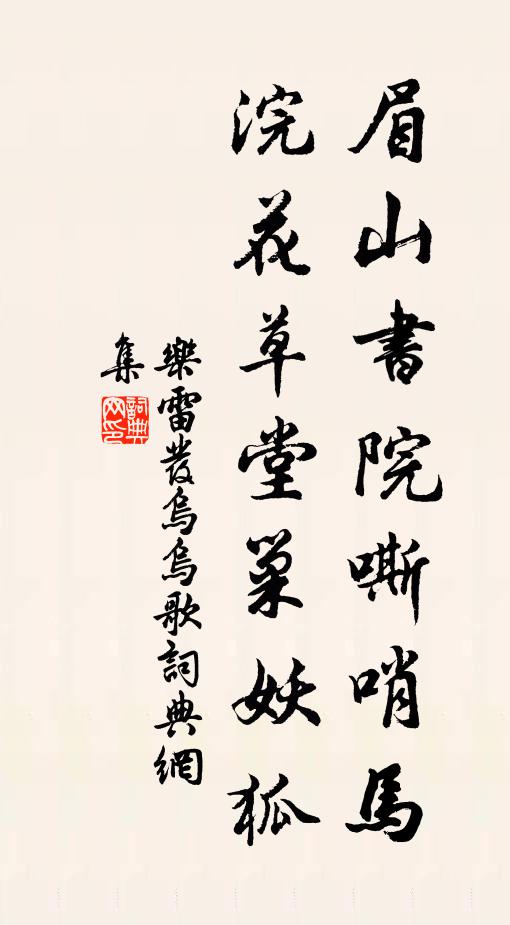 眉山書院嘶哨馬
浣花草堂巢妖狐
樂雷發烏烏歌詞典網
集
詞典網印